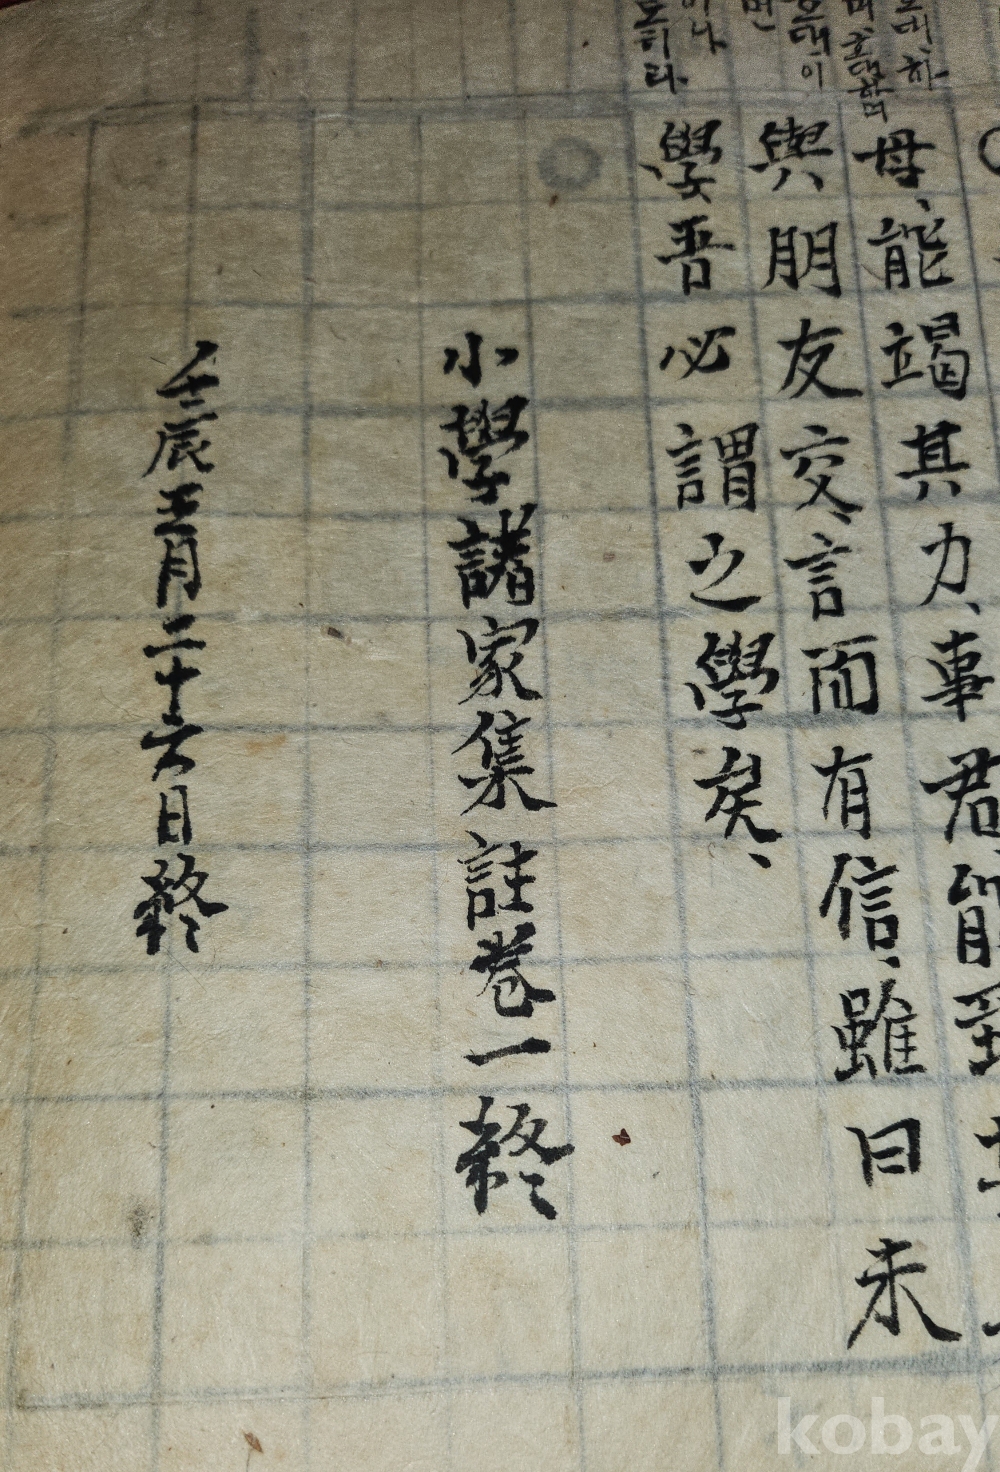 母、能竭其力、事君、能致其
與朋友交、言而有信、雖曰未
學吾必謂之學矣、
小學諸家集註卷一終
壬辰五月二十六日終
kobay